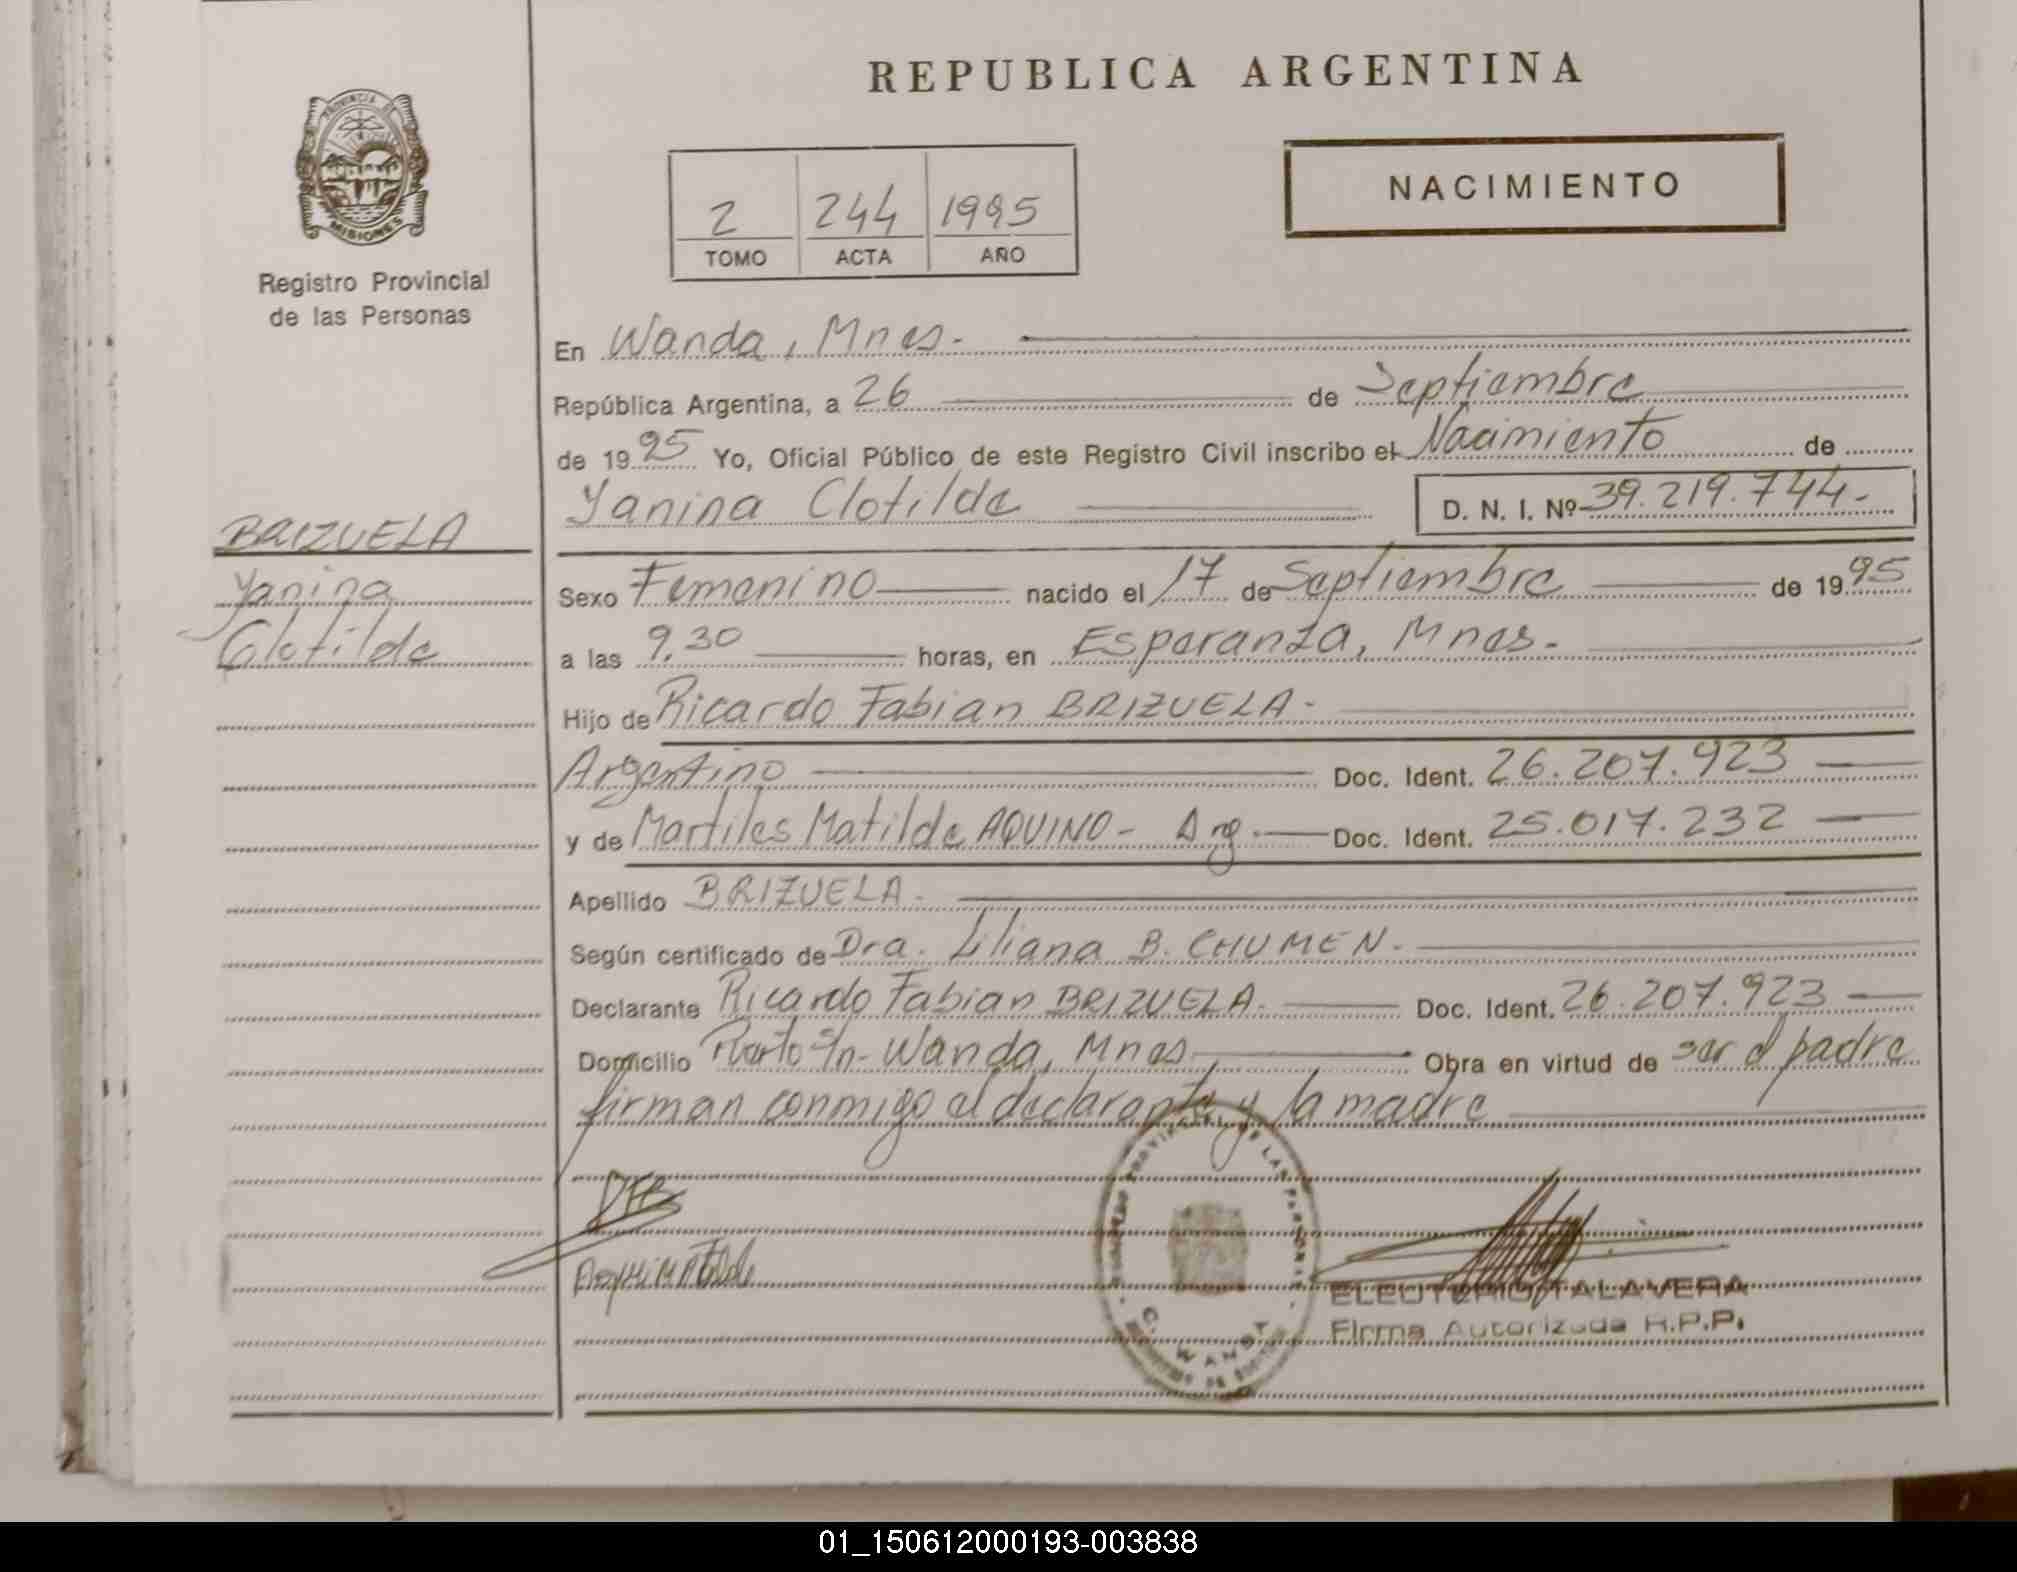 REPUBLICA ARGENTINA
PROVINCIA DE
MISIONES
Registro Provincial
de las Personas
NACIMIENTO
2 244 1995
TOMO ACTA AÑO
En Wanda, Mnes.-
República Argentina, a 26 de Septiembre
de 1995 Yo, Oficial Público de este Registro Civil inscribo el Nacimiento de
Yanina Clotilde D. N. I. Nº 39.219.744-
BRIZUELA
Yanina
Clotilde
Sexo Femenino nacido el 17 de Septiembre de 1995
a las 9,30 horas, en Esperanza, Mnes.-
Hijo de Ricardo Fabian BRIZUELA-
Argentino Doc. Ident. 26.207.923
y de Martiles Matilde AQUINO- Arg.- Doc. Ident. 25.017.232
Apellido BRIZUELA-
Según certificado de Dra. Liliana B. CHUMEN.-
Declarante Ricardo Fabian BRIZUELA.- Doc. Ident. 26.207.923
Domicilio Puerto s/n- Wanda, Mnes Obra en virtud de ser el padre
firman conmigo el declarante y la madre
WANDA
ELEUTERIO TALAVERA
Firma Autorizada R.P.P.
01_150612000193-003838